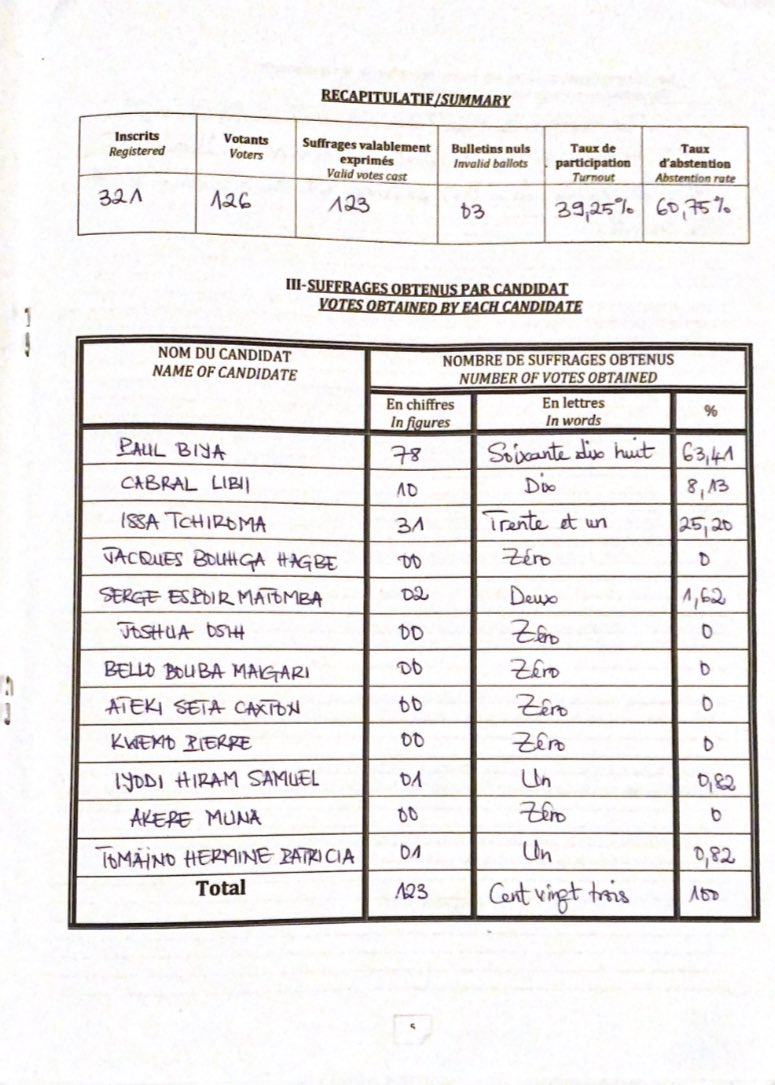 RECAPITULATIF/SUMMARY
Inscrits Registered | Votants Voters | Suffrages valablement exprimés Valid votes cast | Bulletins nuls Invalid ballots | Taux de participation Turnout | Taux d'abstention Abstention rate
321 | 126 | 123 | 03 | 39,25% | 60,75%
III-SUFFRAGES OBTENUS PAR CANDIDAT
VOTES OBTAINED BY EACH CANDIDATE
NOM DU CANDIDAT | NOMBRE DE SUFFRAGES OBTENUS
NAME OF CANDIDATE | NUMBER OF VOTES OBTAINED
En chiffres | En lettres | %
In figures | In words
PAUL BIYA | 78 | Soixante dix huit | 63,41
CABRAL LIBII | 10 | Dix | 8,13
ISSA TCHIROMA | 31 | Trente et un | 25,20
JACQUES BOUHGA HAGBE | 00 | Zéro | 0
SERGE ESPOIR MATOMBA | 02 | Deux | 1,62
JOSHUA OSIH | 00 | Zéro | 0
BELLO BOUBA MAIGARI | 00 | Zéro | 0
ATEKI SETA CAXTON | 00 | Zéro | 0
KWEMO PIERRE | 00 | Zéro | 0
IYODI HIRAM SAMUEL | 01 | Un | 0,82
AKERE MUNA | 00 | Zéro | 0
TOMAÏNO HERMINE PATRICIA | 01 | Un | 0,82
Total | 123 | Cent vingt trois | 100
5